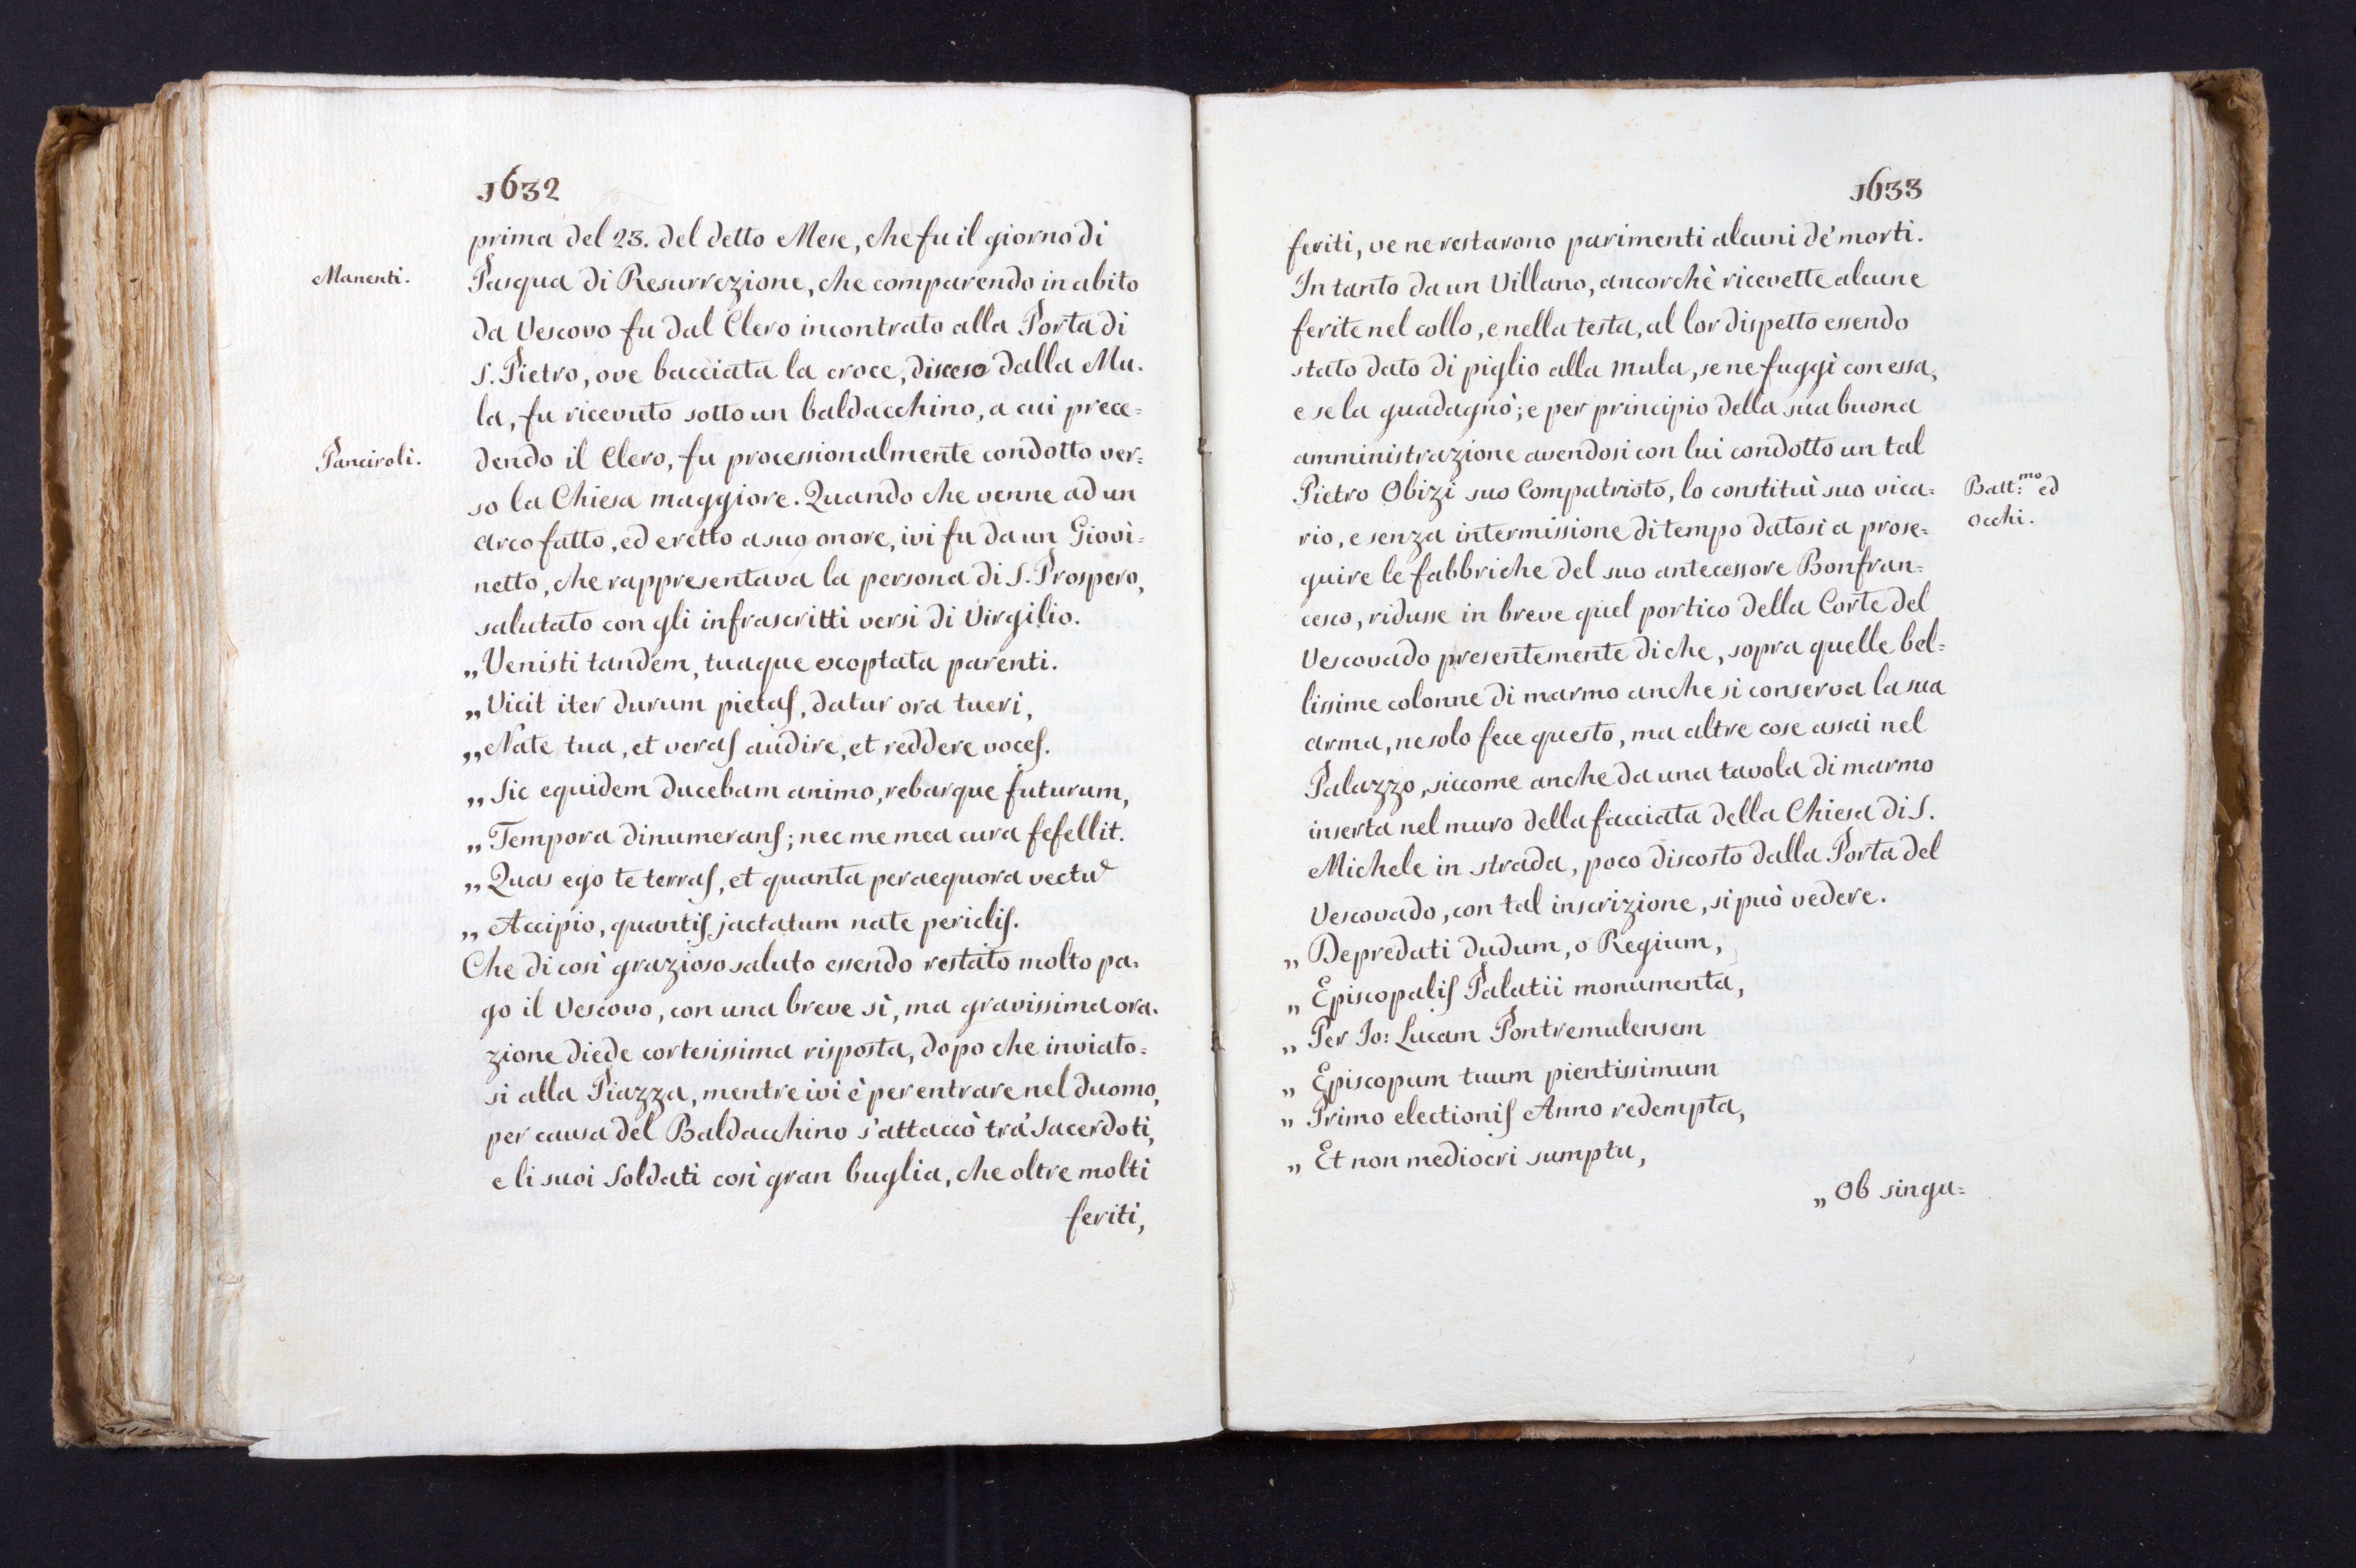 1632
prima del 23. del detto Mese, che fu il giorno di
Manenti.
Pasqua di Resurrezione, che comparendo in abito
da Vescovo fu dal Clero incontrato alla Porta di
S. Pietro, ove bacciata la croce, disceso dalla Mu-
la, fu ricevuto sotto un baldacchino, a cui prece=
Panciroli.
dendo il Clero, fu processionalmente condotto ver=
so la Chiesa maggiore. Quando che venne ad un
arco fatto, ed eretto a suo onore, ivi fu da un Giovi=
netto, che rappresentava la persona di S. Prospero,
salutato con gli infrascritti versi di Virgilio.
„ Venisti tandem, tuaque exoptata parenti.
„ Vicit iter durum pietas, datur ora tueri,
„ Nate tua, et veras audire, et reddere voces.
„ Sic equidem ducebam animo, rebarque futurum,
„ Tempora dinumerans; nec me mea cura fefellit.
„ Quas ego te terras, et quanta per aequora vectu
„ Accipio, quantis jactatum nate periclis.
Che di così grazioso saluto essendo restato molto pa-
go il Vescovo, con una breve sì, ma gravissima ora-
zione diede cortesissima risposta, dopo che inviato=
si alla Piazza, mentre ivi è per entrare nel duomo,
per causa del Baldacchino s'attaccò trà Sacerdoti,
e li suoi Soldati così gran buglia, che oltre molti
feriti,
1633
feriti, ve ne restarono parimenti alcuni de' morti.
In tanto da un Villano, ancorchè ricevette alcune
ferite nel collo, e nella testa, al lor dispetto essendo
stato dato di piglio alla mula, se ne fuggì con essa,
e se la guadagnò; e per principio della sua buona
amministrazione avendosi con lui condotto un tal
Pietro Obizi suo Compatrioto, lo constituì suo vica=
Batt:mo ed
rio, e senza intermissione di tempo datosi a prose=
Occhi.
guire le fabbriche del suo antecessore Bonfran=
cesco, ridusse in breve quel portico della Corte del
Vescovado presentemente di che, sopra quelle bel=
lissime colonne di marmo anche si conserva la sua
arma, ne solo fece questo, ma altre cose assai nel
Palazzo, siccome anche da una tavola di marmo
inserta nel muro della facciata della Chiesa di S.
Michele in strada, poco discosto dalla Porta del
Vescovado, con tal inscrizione, si può vedere.
„ Depredati dudum, o Regium,
„ Episcopalis Palatii monumenta,
„ Per Jo: Lucam Pontremulensem
„ Episcopum tuum pientissimum
„ Primo electionis Anno redempta,
„ Et non mediocri sumptu,
„ Ob singu=